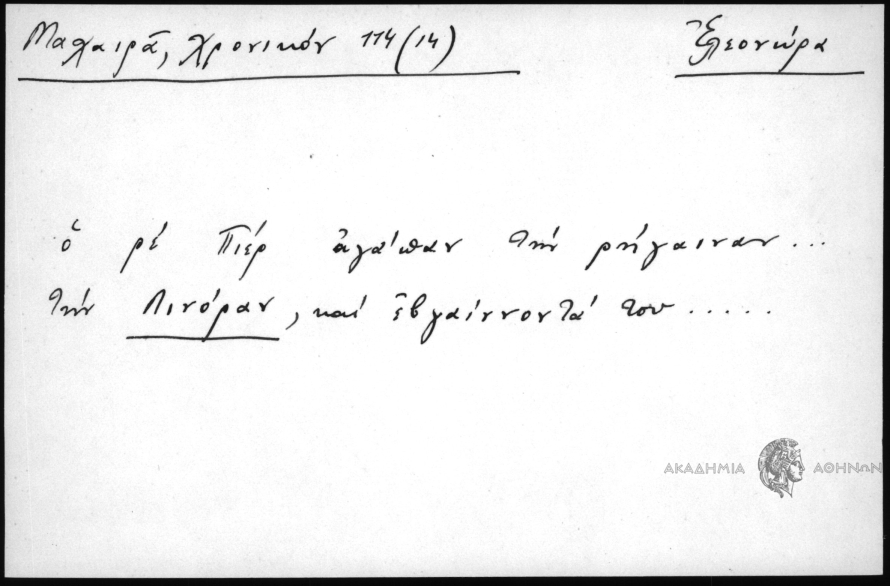 Μαχαιρᾶ, Χρονικόν 114 (14)
Ἐλεονώρα
ὁ ρέ Πιέρ ἀγάπαν τήν ρήγαιναν ...
τήν Λινόραν, καί ἐβγαίννοντά του .....
ΑΚΑΔΗΜΙΑ ΑΘΗΝΩΝ